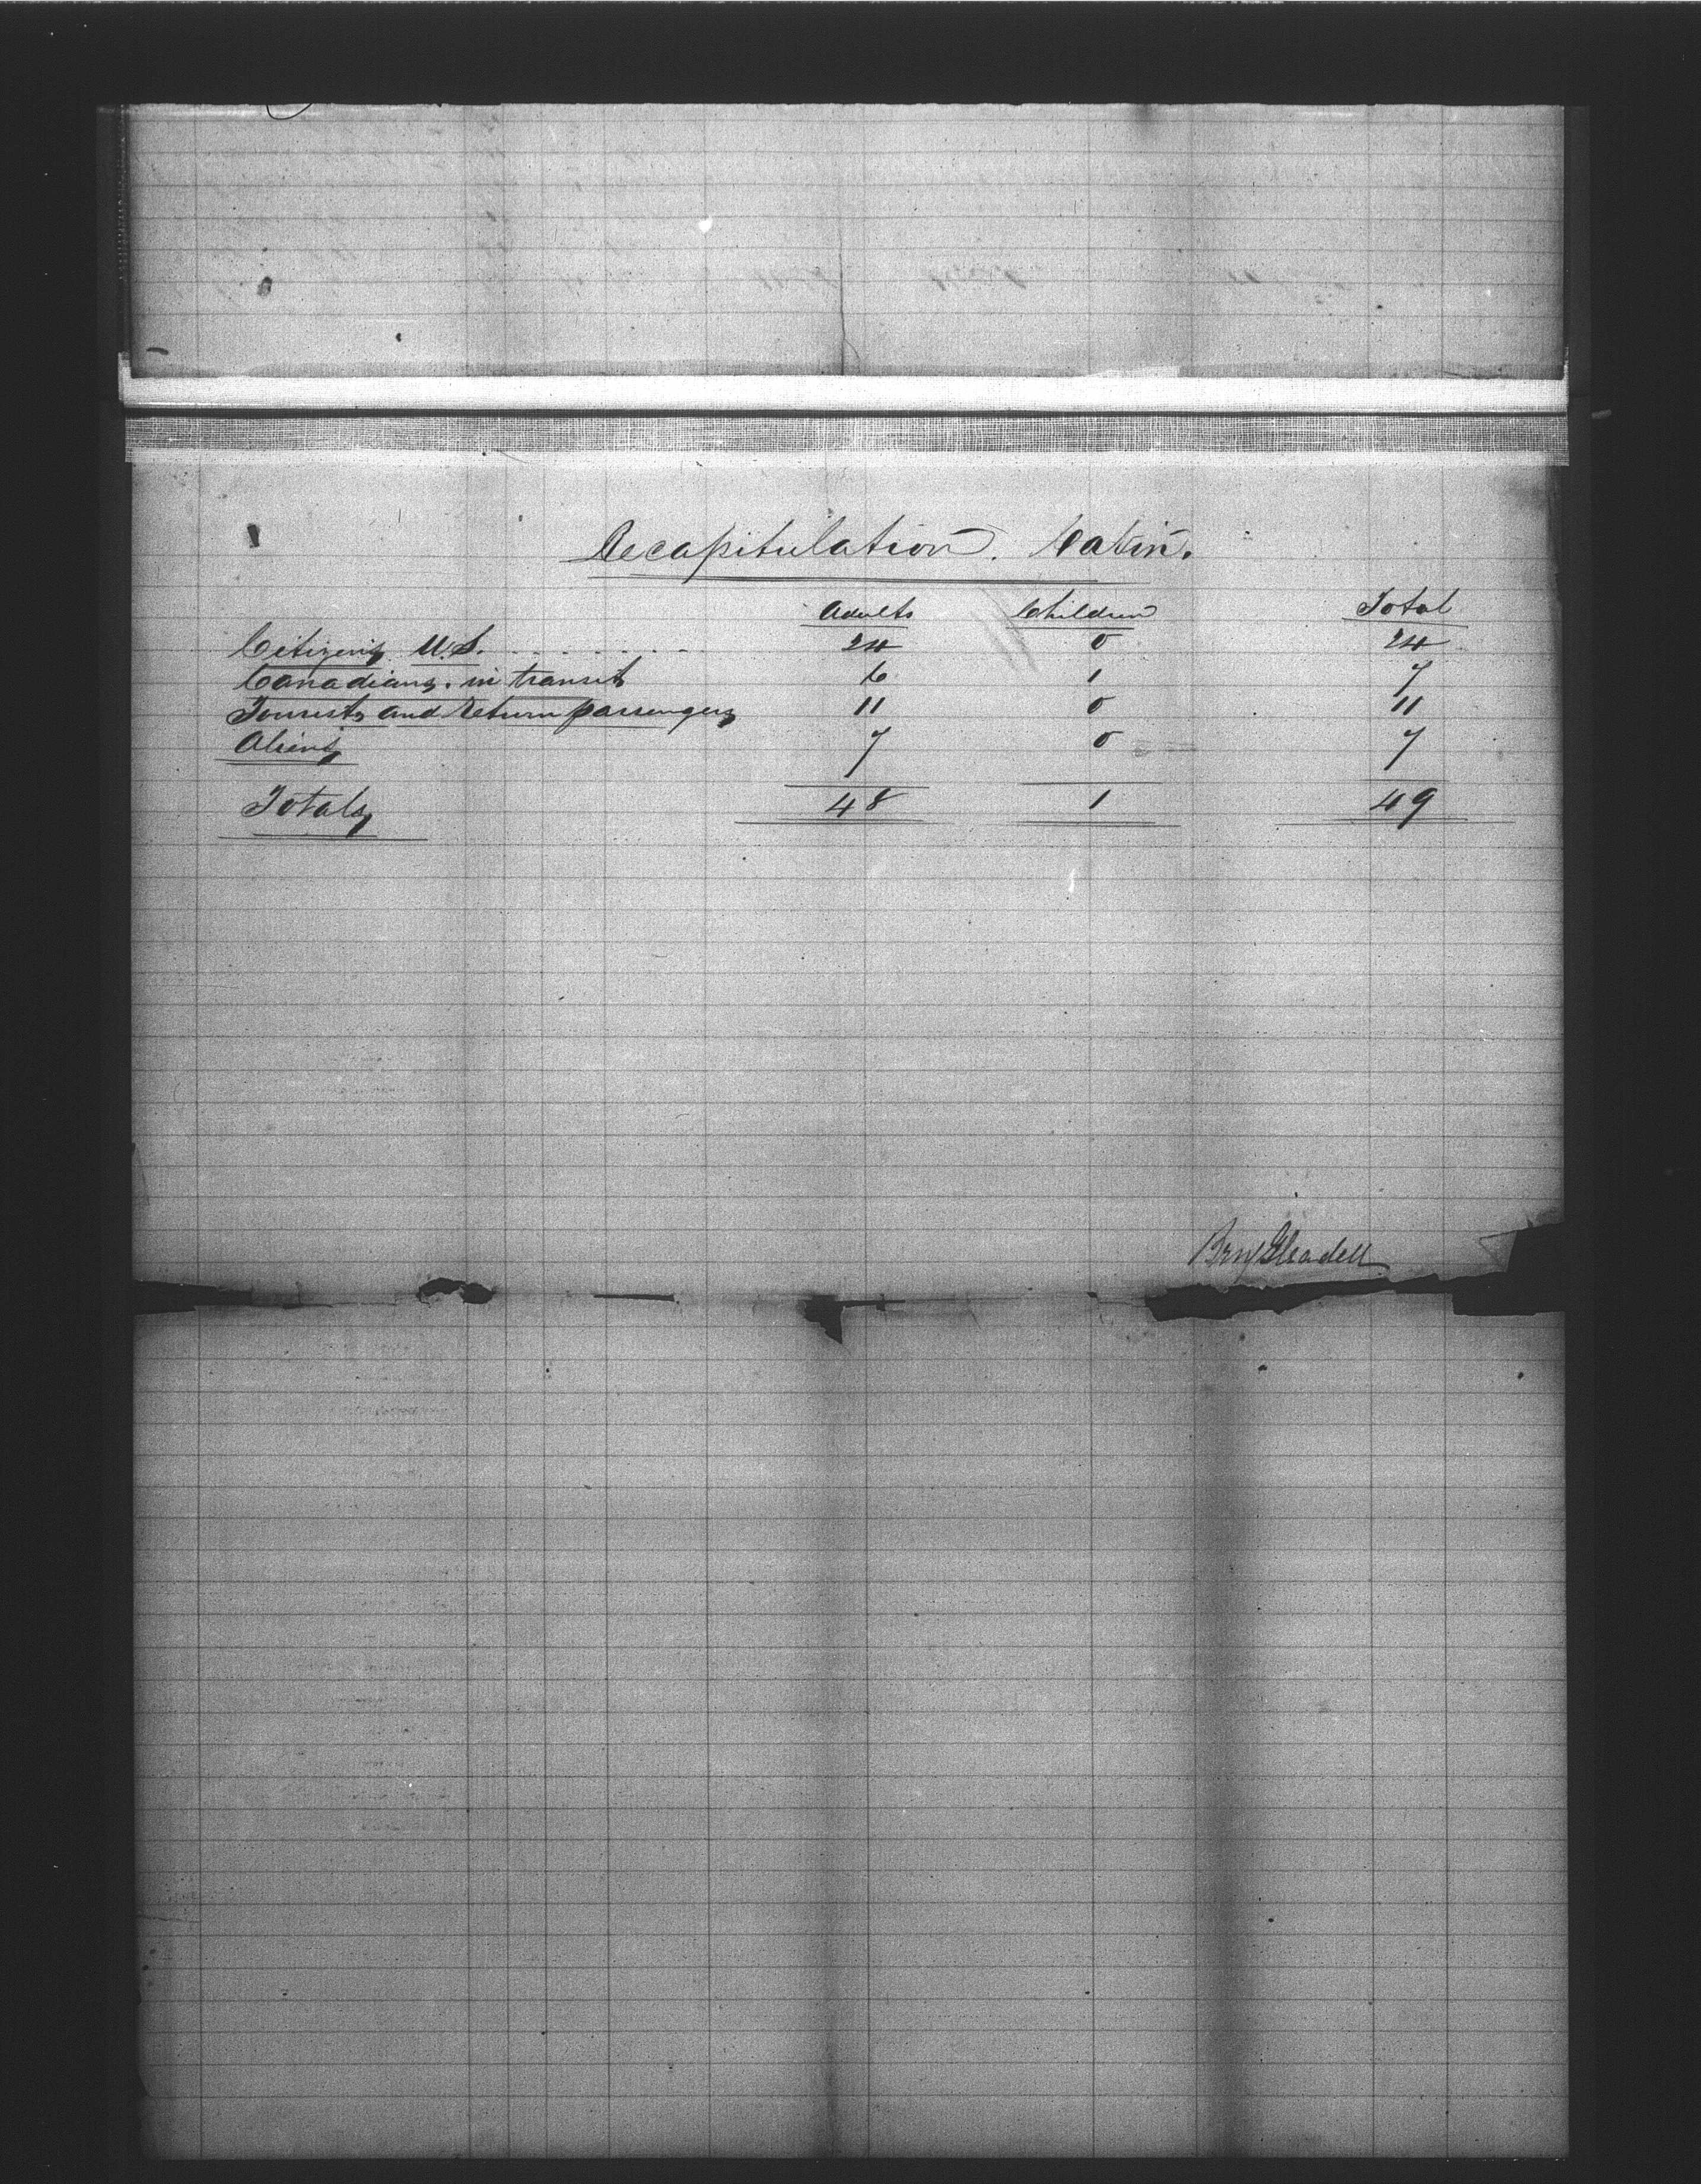 Recapitulation. Cabin.
Adults Children Total
Citizens U.S. . . . . . . . 24 0 24
Canadians. in transit 6 1 7
Tourists and Return passengers 11 0 11
Aliens 7 0 7
Totals 48 1 49
Benj Gleadell